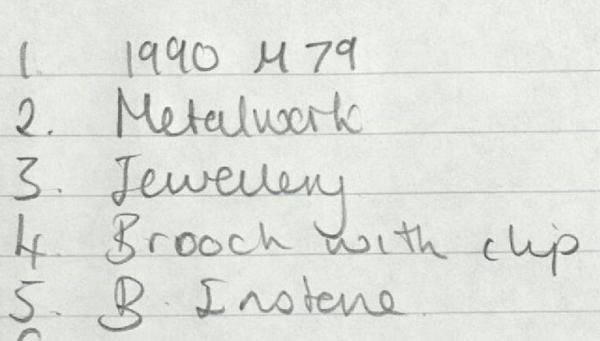 1. 1990 M 79
2. Metalwork
3. Jewellery
4. Brooch with clip
5. B. Instone